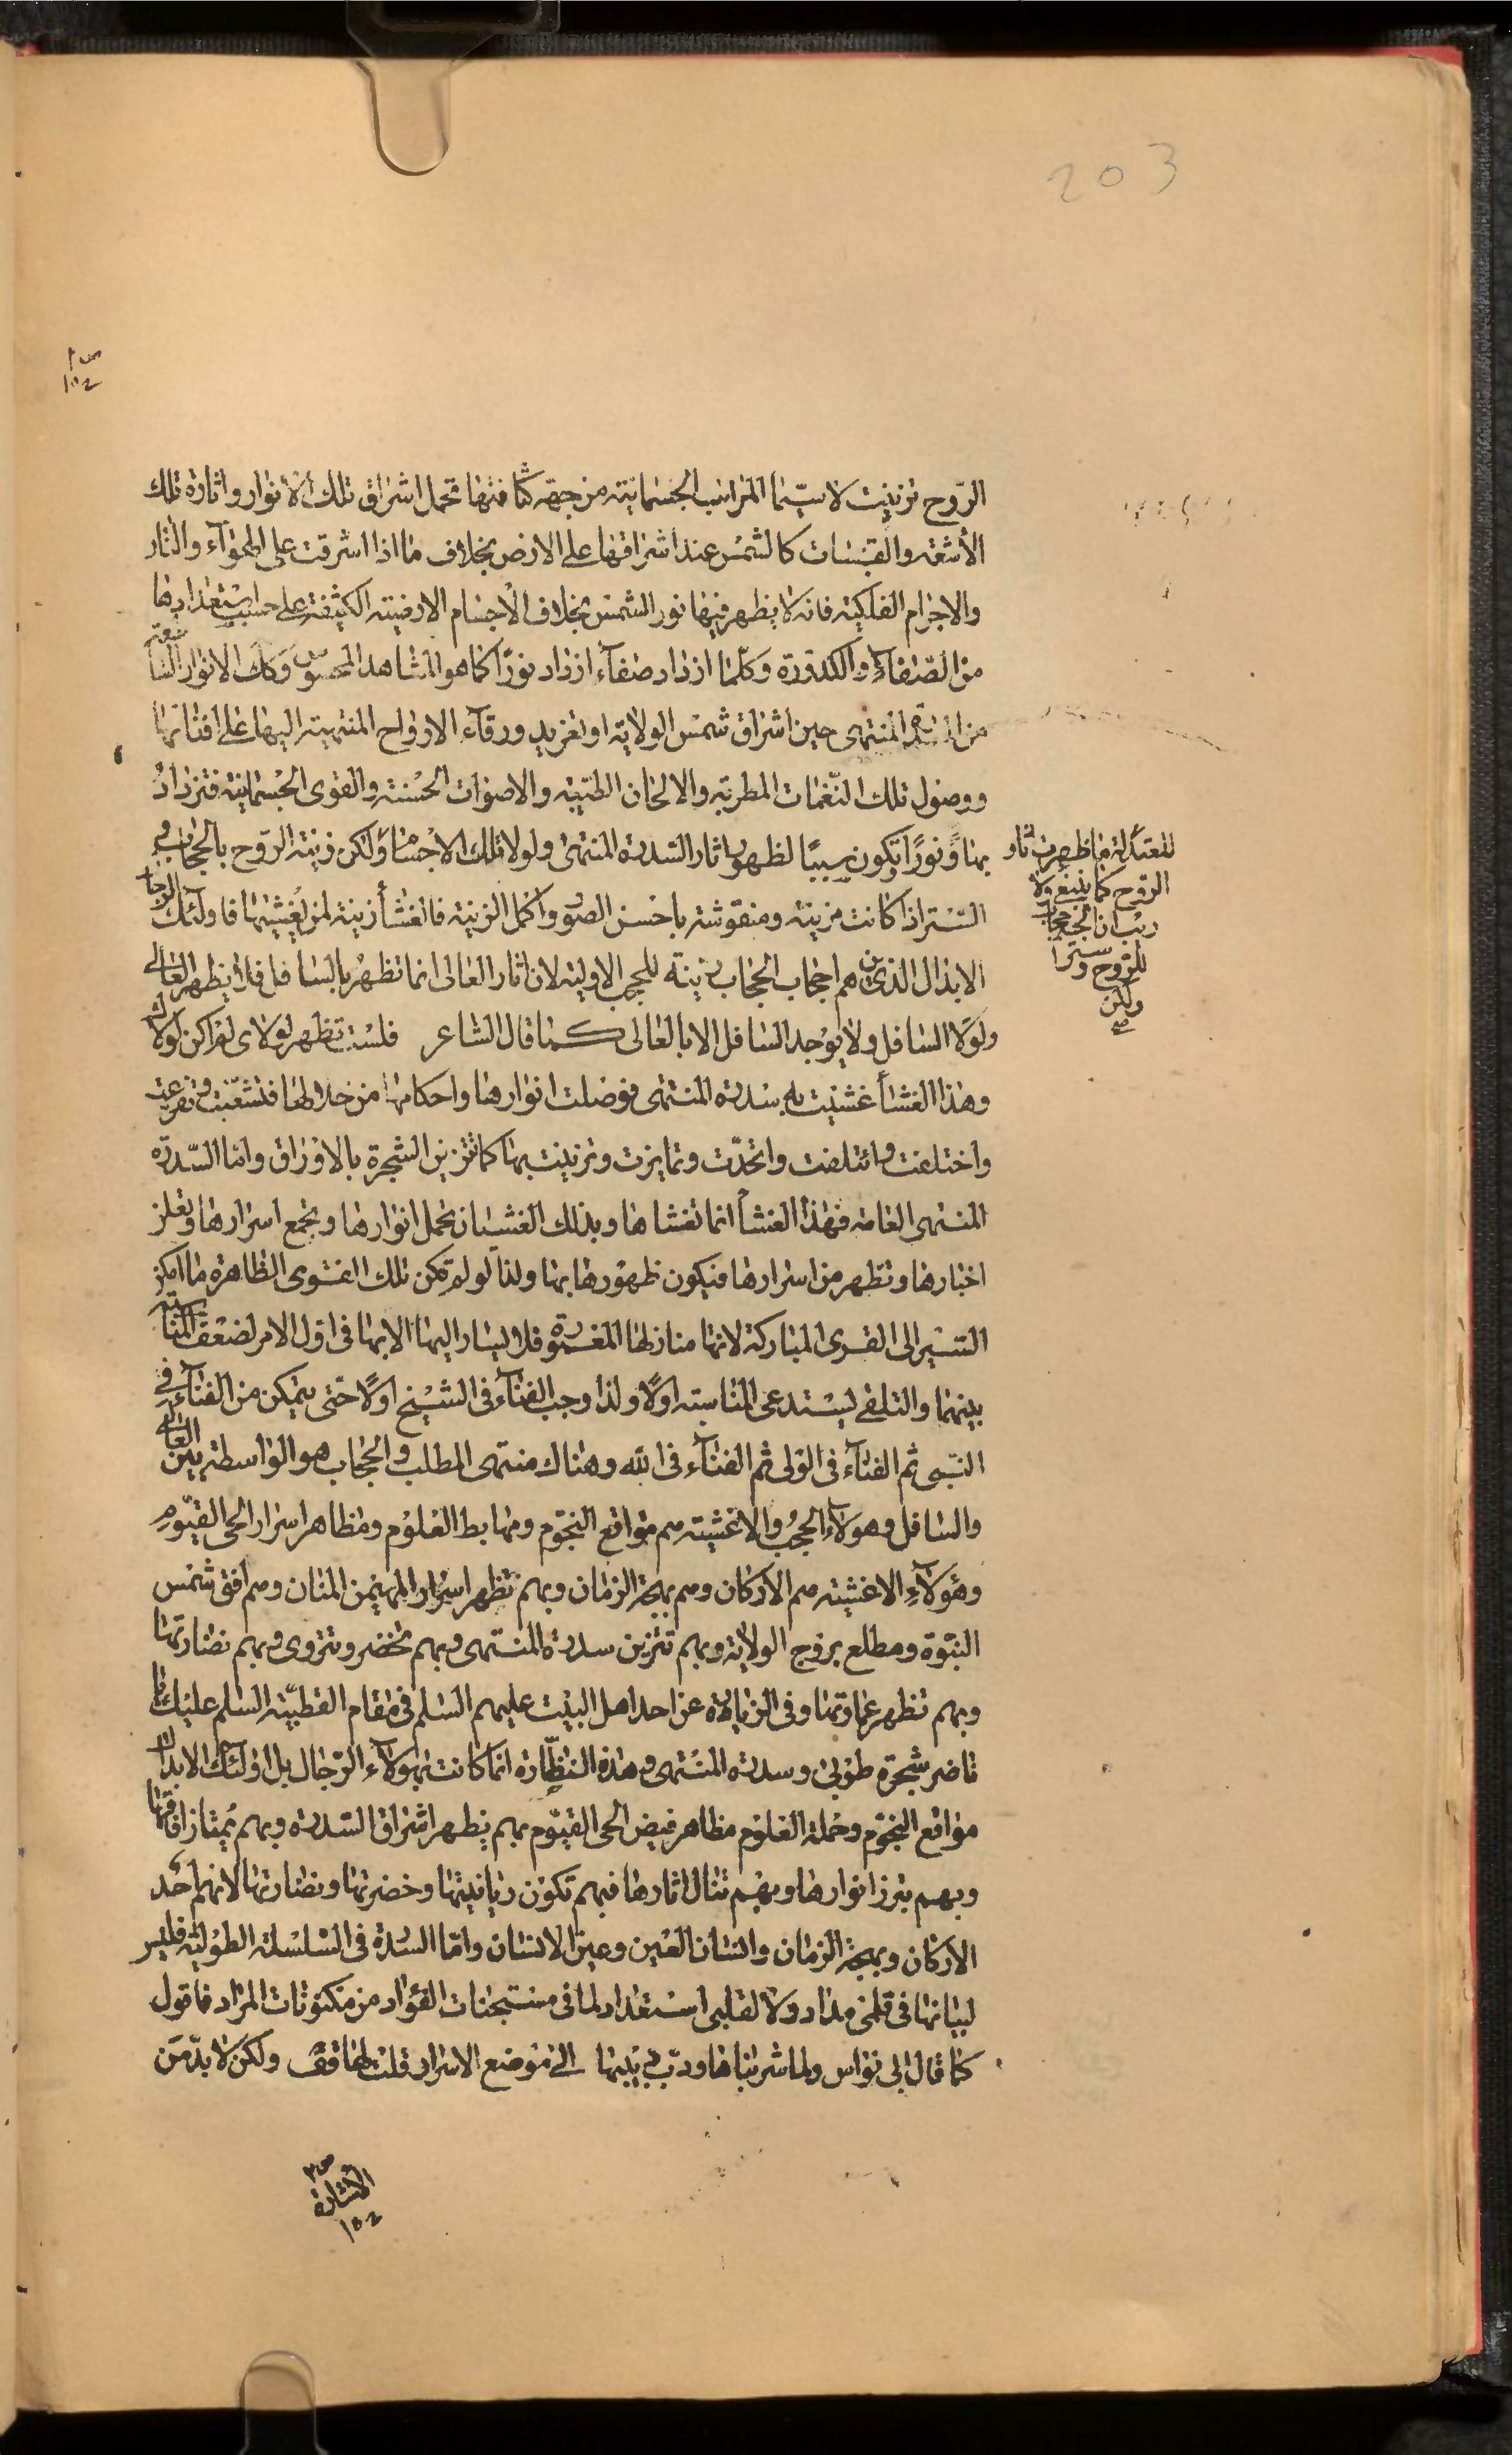 203
الروح تزينت لا سيّما المراتب الجسمانيّة من جهة كثافتها تحمل اشراق تلك الانوار واثارة تلك
الأشعّه والقبسات كالشمس عند اشراقها على الارض بخلاف ما اذا اشرقت على الهوآء والنار
والاجرام الفلكيّة فانه لا يظهر فيها نور الشمس بخلاف الاجسام الارضيّة الكثيفة على حسب استعدادها
من الصفاء والكدورة وكلّما ازداد صفآء ازداد نورًا كما هو المشاهد المحسوس وكك الانوار الشا
من السدرة المنتهى حين اشراق شمس الولاية او تغريد ورقآء الارواح المنتهية اليها على افنانها
ووصول تلك النّغمات المطربة والالحان الطيّبة والاصوات الحسنة والقوى الجسمانية فتزداد
بهاً ونورًا وتكون سببًا لظهور اثار السّدرة المنتهى ولولا تلك الاجسام ولكن زينة الروح بالحجاب و
للمعتدلة ما ظهرت اثار
الروح كما ينبغي ولا
ريب ان الجسم حجاب
للروح وسترا
ولكن
صح
السّتر اذا كانت مزينة ومنقوشة باحسن الصور واكمل الزينة فالغشأ زينة لمن يغشيها فاولئك الرجال
الابدال الذين هم احجاب الحجاب زينة للحجب الاولية لان اثار العالى انما تظهر بالسافل فلا يظهر العالى
لولا السافل ولا يوجد السافل الا بالعالى كما قال الشاعر فلست تظهر لولاى لم اكن لولاك
وهذا الغشأ غشيت به سدرة المنتهى فوصلت انوارها واحكامها من خلالها فتشعّبت وتفرعت
واختلفت وائتلفت واتحدّت وتمايزت وتزينت بها كما تتزين الشجرة بالاوراق وامّا السّدرة
المنتهى العامة فهذا الغشأ انما تغشاها وبذلك الغشيان تحمل انوارها وتجمع اسرارها وتعلن
اخبارها وتظهر من اسرارها فيكون ظهورها بها ولذا لو لم تكن تلك القرى الظاهرة ما امكن
السّير الى القرى المباركة لانها منازلها المعمورة فلا يسار اليها الا بها فى اول الامر لضعف المناسبة
بينهما والتلقى يستدعى المناسبة اولًا ولذا وجب الفنآء فى الشيخ اولًا حتى يتمكن من الفنآء فى
النبى ثم الفنآء فى الولى ثم الفنآء فى الله وهناك منتهى المطلب والحجاب هو الواسطة بين العالى
والسافل وهولآء الحجب والاغشية هم مواقع النجوم ومهابط العلوم ومظاهر اسرار الحى القيّوم
وهؤلآء الاغشية هم الأركان وهم بهجة الزمان وبهم تظهر اسرار المهيمن المنان وهم افق شمس
النبّوة ومطلع بروج الولاية وبهم تتزين سدرة المنتهى وبهم تخضر وتتروى وبهم نضارتها
وبهم تظهر غماوتها وفى الزيارة عن احد اهل البيت عليهم السّلم فى مقام القطبيّة السلم عليك يا
ناضر شجرة طوبى وسدرة المنتهى وهذه النظّارة انما كانت بهولآء الرّجال بل اولئك الابدال
مواقع النجوم وحملة العلوم مظاهر فيض الحى القيّوم بهم يظهر اشراق السّدرة وبهم يمتاز افاقها
وبهم يبرز انوارها وبهم تنال اثارها فبهم تكون ريانيتها وخضرتها ونضارتها لانهم احد
الاركان وبهجة الزمان وانسان العين وعين الانسان وامّا السدرة فى السّلسلة الطولية فليس
لبيانها فى قلمى مداد ولا لقلبى استعداد لما فى مستجنات الفؤاد من مكنونات المراد فاقول
كما قال ابى نواس ولما شربناها ودبّ دبيبها الى موضع الاسرار قلت لها قفى ولكن لا بدّ من